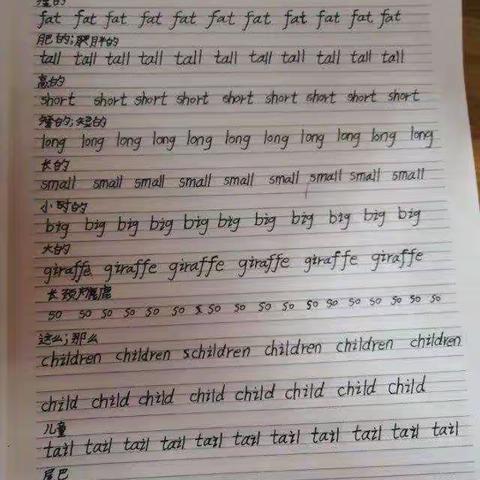 的
fat fat fat fat fat fat fat fat fat fat fat
肥的;肥胖的
tall tall tall tall tall tall tall tall tall tall tall
高的
short short short short short short short short short
矮的;短的
long long long long long long long long long long long
长的
small small small small small small small small small
小时的
big big big big big big big big big big big
大的
giraffe giraffe giraffe giraffe giraffe giraffe
长颈鹿
so so so so so so so so so so so so so so so so so
这么;那么
children children schildren children children children
child child child child child child child child
儿童
tail tail tail tail tail tail tail tail tail tail tail
尾巴